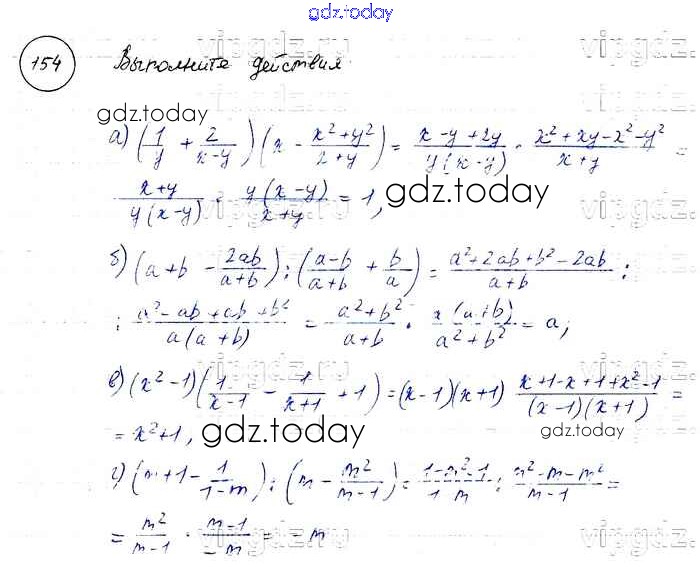 gdz.today
154 Выполните действия.
gdz.today
а) (1/y + 2/(x-y)) (x - (x²+y²)/(x+y)) = (x-y+2y)/(y(x-y)) · (x²+xy-x²-y²)/(x+y) =
(x+y)/(y(x-y)) · y(x-y)/(x+y) = 1,
gdz.today
б) (a+b - 2ab/(a+b)) : ((a-b)/(a+b) + b/a) = (a²+2ab+b²-2ab)/(a+b) :
: (a²-ab+ab+b²)/(a(a+b)) = (a²+b²)/(a+b) · a(a+b)/(a²+b²) = a;
в) (x²-1)(1/(x-1) - 1/(x+1) + 1) = (x-1)(x+1) (x+1-x+1+x²-1)/((x-1)(x+1)) =
= x²+1,
gdz.today
gdz.today
г) (m+1 - 1/(1-m)) : (m - m²/(m-1)) = (1-m²-1)/(1-m) : (m²-m-m²)/(m-1) =
= m²/(m-1) · (m-1)/(-m) = -m
gdz.today
vipgdz.com